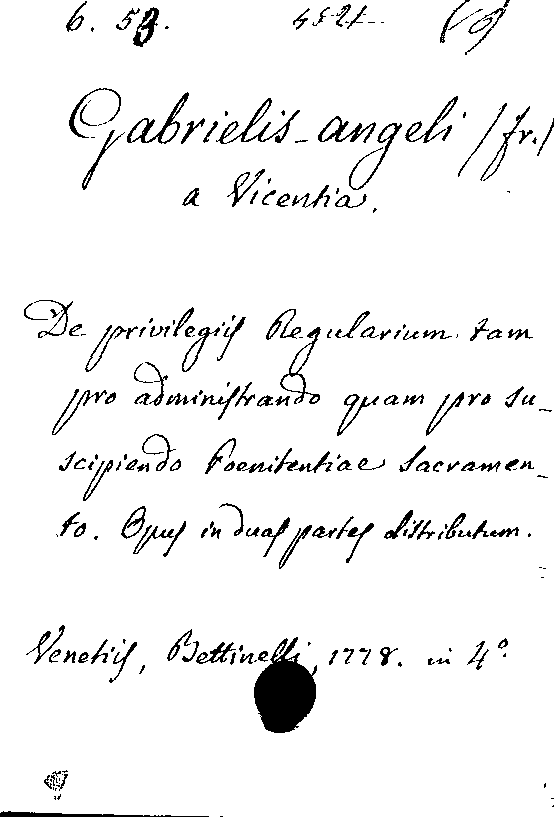 6. 53.
Gabrielis-angeli /fr./
a Vicentia.
De privilegiis Regularium tam
pro administrando quam pro su-
scipiendo Poenitentiae Sacramen-
to. Opus in duas partes distributum.
Venetiis, Bettinelli, 1778. in 4º.